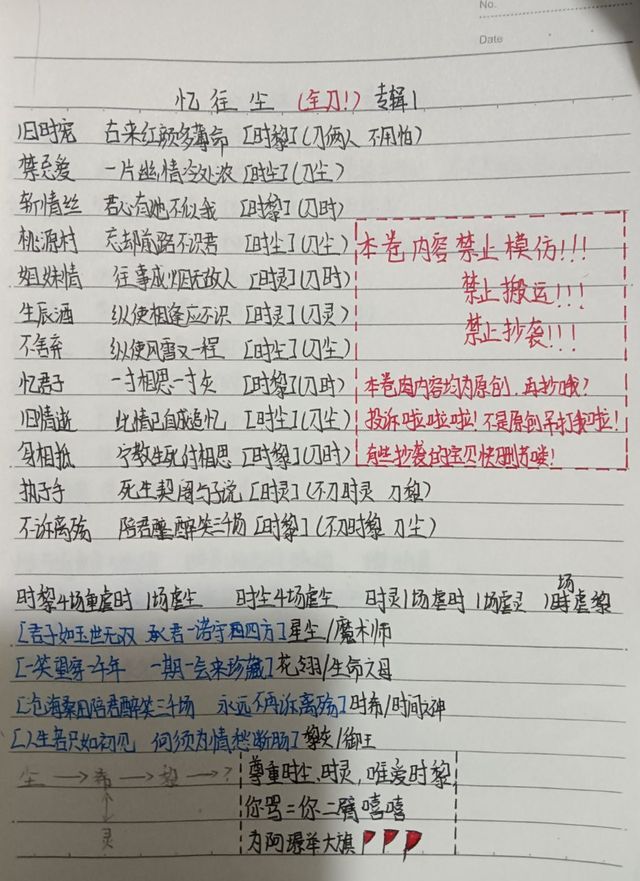 No.
Date
忆往尘 (全刀!) 专辑1
旧时宠 古来红颜多薄命 [时黎](刀俩人 不用怕)
禁忌爱 一片幽情冷处浓 [时尘](刀尘)
斩情丝 君心有她不似我 [时黎](刀时)
桃源村 忘却前路不识君 [时尘](刀尘)
姐妹情 往事成烟无故人 [时灵](刀时)
生辰酒 纵使相逢应不识 [时灵](刀灵)
不舍弃 纵使风雪又一程 [时尘](刀尘)
忆君子 一寸相思一寸灰 [时黎](刀时)
旧情逝 此情已自成追忆 [时尘](刀尘)
身相抵 宁教生死付相思 [时黎](刀时)
执子手 死生契阔与子说 [时灵](不刀时灵 刀黎)
不诉离殇 陪君醉笑三千场 [时黎](不刀时黎 刀尘)
本卷内容禁止模仿!!!
禁止搬运!!!
禁止抄袭!!!
本卷内内容均为原创,再抄哦?
投诉啦啦啦啦!不是原创吊打我啦!
有些抄袭的宝贝快删喽!
时黎4场重虐时 1场虐尘 时尘4场虐尘 时灵1场虐时 1场虐灵 1场虐黎
[君子如玉世无双 承君一诺守四方]星尘/魔术师
[一笑望穿一千年 一期一会来珍藏]花翎/生命之母
[沧海桑田陪君醉笑三千场 永远不再诉离殇]时希/时间之神
[人生若只如初见 何须为情愁断肠]黎灰/御王
尘→希→黎→?
灵
尊重时尘、时灵,唯爱时黎
你骂=你二臂嘻嘻
为阿璟举大旗